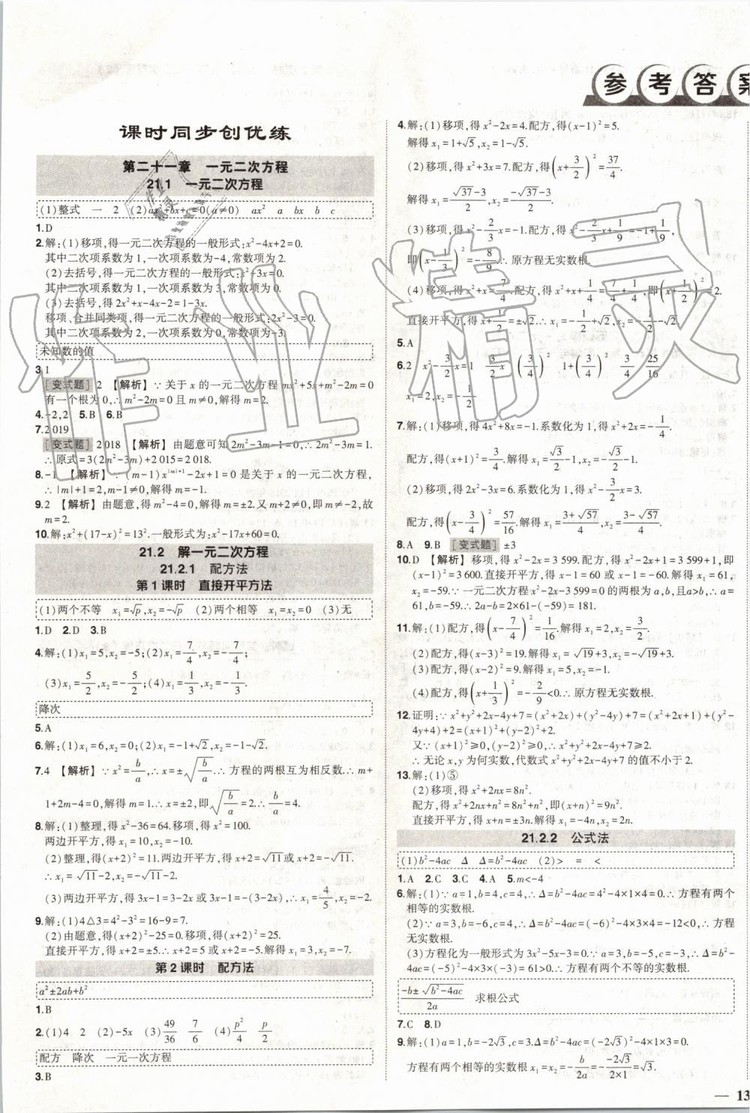 参考答案
课时同步创优练
第二十一章 一元二次方程
21.1 一元二次方程
(1)整式 一 2 (2)ax²+bx+c=0(a≠0) ax² a bx b c
1.D
2.解:(1)移项,得一元二次方程的一般形式:x²-4x+2=0.
其中二次项系数为1,一次项系数为-4,常数项为2.
(2)去括号,得一元二次方程的一般形式:x²+3x=0.
其中二次项系数为1,一次项系数为3,常数项为0.
(3)去括号,得2x²+x-4x-2=1-3x.
移项,合并同类项,得一元二次方程的一般形式:2x²-3=0.
其中二次项系数为2,一次项系数为0,常数项为-3.
未知数的值
3.1
[变式题] 2 【解析】∵关于x的一元二次方程mx²+5x+m²-2m=0
有一个根为0,∴m²-2m=0且m≠0,解得m=2.
4.-2,2 5.B 6.B
7.2 019
[变式题] 2 018 【解析】由题意可知2m²-3m-1=0,∴2m²-3m=1.
∴原式=3(2m²-3m)+2 015=2 018.
8.-1 【解析】∵(m-1)x^{|m|+1}-2x+1=0是关于x的一元二次方程,
∴|m|+1=2,m-1≠0,解得m=-1.
9.2 【解析】由题意,得m²-4=0,解得m=±2.又m+2≠0,即m≠-2,故
m=2.
10.解:x²+(17-x)²=13².一般形式为:x²-17x+60=0.
21.2 解一元二次方程
21.2.1 配方法
第1课时 直接开平方法
(1)两个不等 x₁=√p,x₂=-√p (2)两个相等 x₁=x₂=0 (3)无
1.D 2.D 3.B
4.解:(1)x₁=5,x₂=-5;(2)x₁=7/4,x₂=-7/4;
(3)x₁=5/2,x₂=-5/2;(4)x₁=1/3,x₂=-1/3.
降次
5.A
6.解:(1)x₁=6,x₂=0;(2)x₁=-1+√2,x₂=-1-√2.
7.4 【解析】∵x²=b/a,∴x=±√(b/a).∴方程的两根互为相反数.∴m+
1+2m-4=0,解得m=1.∴x=±2,即±√(b/a)=±2.∴b/a=4.
8.解:(1)整理,得x²-36=64.移项,得x²=100.
两边开平方,得x₁=10,x₂=-10.
(2)整理,得(x+2)²=11.两边开平方,得x+2=√11或x+2=-√11.
∴x₁=√11-2,x₂=-√11-2.
(3)两边开平方,得3x-1=3-2x或3x-1=-3+2x.∴x₁=4/5,x₂=-2.
9.解:(1)4△3=4²-3²=16-9=7.
(2)由题意,得(x+2)²-25=0.移项,得(x+2)²=25.
直接开平方,得x+2=±5.∴x+2=5或x+2=-5.∴x₁=3,x₂=-7.
第2课时 配方法
a²±2ab+b²
1.B
2.(1)4 2 (2)-5x (3)49/36 7/6 (4)p²/4 p/2
配方 降次 一元一次方程
3.B
4.解:(1)移项,得x²-2x=4.配方,得(x-1)²=5.
解得x₁=1+√5,x₂=1-√5.
(2)移项,得x²+3x=7.配方,得(x+3/2)²=37/4.
解得x₁=(√37-3)/2,x₂=(-√37-3)/2.
(3)移项,得x²-2/3x=-1.配方,得x²-2/3x+1/9=-1+1/9,
即(x-1/3)²=-8/9.∴原方程无实数根.
直接开平方,得
5.A
7.解:(1)移项,得4x²+8x=-1.系数化为1,得x²+2x=-1/4.
配方,得(x+1)²=3/4.解得x₁=√3/2-1,x₂=-√3/2-1.
8.A 9.B [变式题] ±3
10.D 【解析】移项,得x²-2x=3 599.配方,得x²-2x+1=3 599+1,即
(x-1)²=3 600.直接开平方,得x-1=60或x-1=-60.解得x₁=61,
x₂=-59.∵一元二次方程x²-2x-3 599=0的两根为a,b,且a>b,∴a=
61,b=-59.∴2a-b=2×61-(-59)=181.
11.解:(1)配方,得(x-7/4)²=1/16.解得x₁=2,x₂=3/2.
(2)配方,得(x-3)²=19.解得x₁=√19+3,x₂=-√19+3.
(3)配方,得(x-2)²=9.解得x₁=5,x₂=-1.
(4)配方,得(x+1/3)²=-2/9<0.∴原方程无实数根.
12.证明:∵x²+y²+2x-4y+7=(x²+2x)+(y²-4y)+7=(x²+2x+1)+(y²-
4y+4)+2=(x+1)²+(y-2)²+2.
又∵(x+1)²≥0,(y-2)²≥0,∴(x+1)²+(y-2)²+2≥2.
∴无论x,y为何实数,代数式x²+y²+2x-4y+7的值不小于2.
13.解:(1)⑤
(2)移项,得x²+2nx=8n².
配方,得x²+2nx+n²=8n²+n²,即(x+n)²=9n².
直接开平方,得x+n=±3n.解得x₁=-4n,x₂=2n.
21.2.2 公式法
(1)b²-4ac Δ Δ=b²-4ac (2)> = <
1.A 2.C 3.A 4.A 5.m<-4
6.解:(1)∵a=1,b=4,c=4,∴Δ=b²-4ac=4²-4×1×4=0.∴方程有两个
相等的实数根.
(2)∵a=3,b=-6,c=4,∴Δ=b²-4ac=(-6)²-4×3×4=-12<0.∴方程
无实数根.
(3)方程化为一般形式为3x²-5x-3=0.∵a=3,b=-5,c=-3,∴Δ=b²-
4ac=(-5)²-4×3×(-3)=61>0.∴方程有两个不等的实数根.
(-b±√(b²-4ac))/2a 求根公式
7.C 8.D
9.解:(1)∵a=1,b=-2√3,c=3,∴Δ=b²-4ac=(-2√3)²-4×1×3=0.
方程有两个相等的实数根x₁=x₂=-b/2a=-(-2√3)/(2×1)=√3.
13